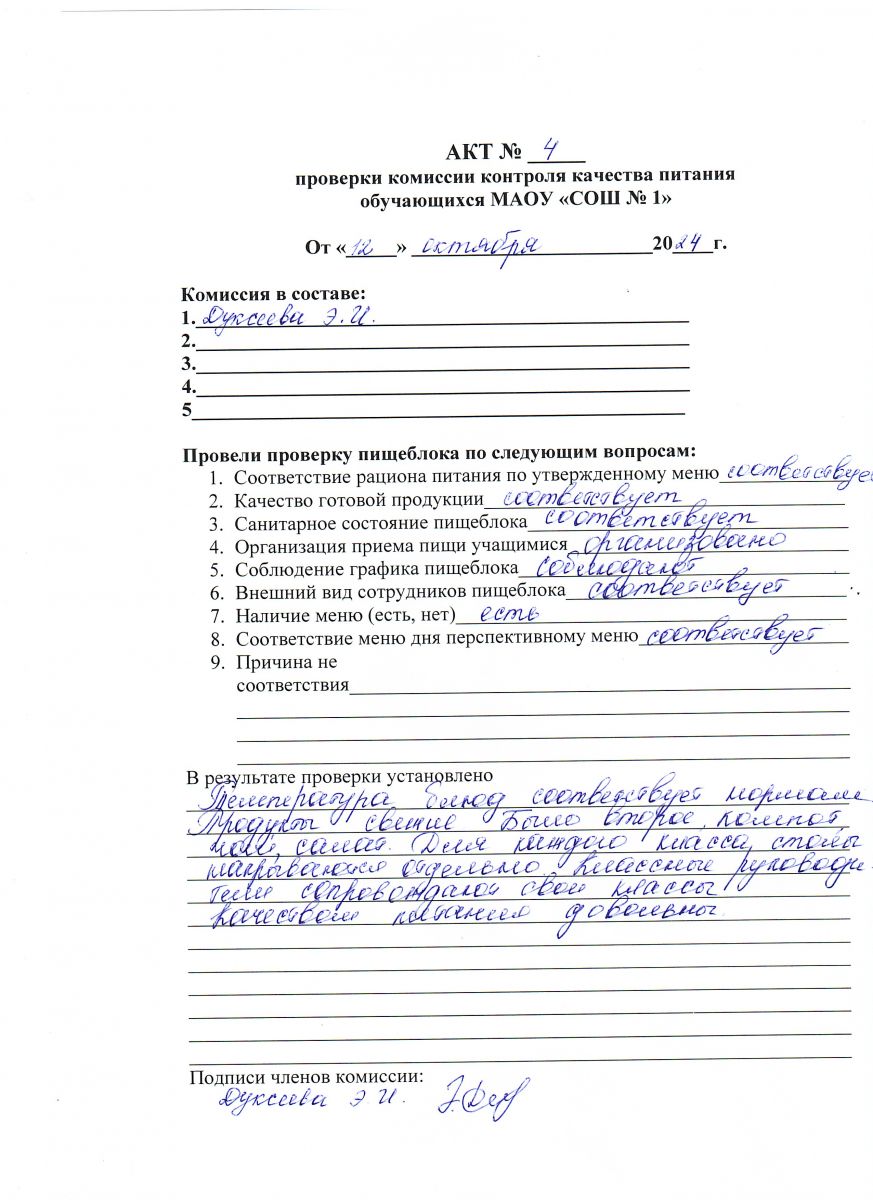 АКТ № 4
проверки комиссии контроля качества питания
обучающихся МАОУ «СОШ № 1»
От «12» октября 2024 г.
Комиссия в составе:
1. Дуксеева Э.И.
2.
3.
4.
5
Провели проверку пищеблока по следующим вопросам:
1. Соответствие рациона питания по утвержденному меню соответствует
2. Качество готовой продукции соответствует
3. Санитарное состояние пищеблока соответствует
4. Организация приема пищи учащимися организовано
5. Соблюдение графика пищеблока соблюдают
6. Внешний вид сотрудников пищеблока соответствует
7. Наличие меню (есть, нет) есть
8. Соответствие меню дня перспективному меню соответствует
9. Причина не
соответствия
В результате проверки установлено
Температура блюд соответствует нормам
Продукты свежие Было второе, компот,
чай, салат. Для каждого класса столы
накрываются отдельно. Классные руководи-
тели сопровождают свои классы
Качеством питания довольны.
Подписи членов комиссии:
Дуксеева Э И.